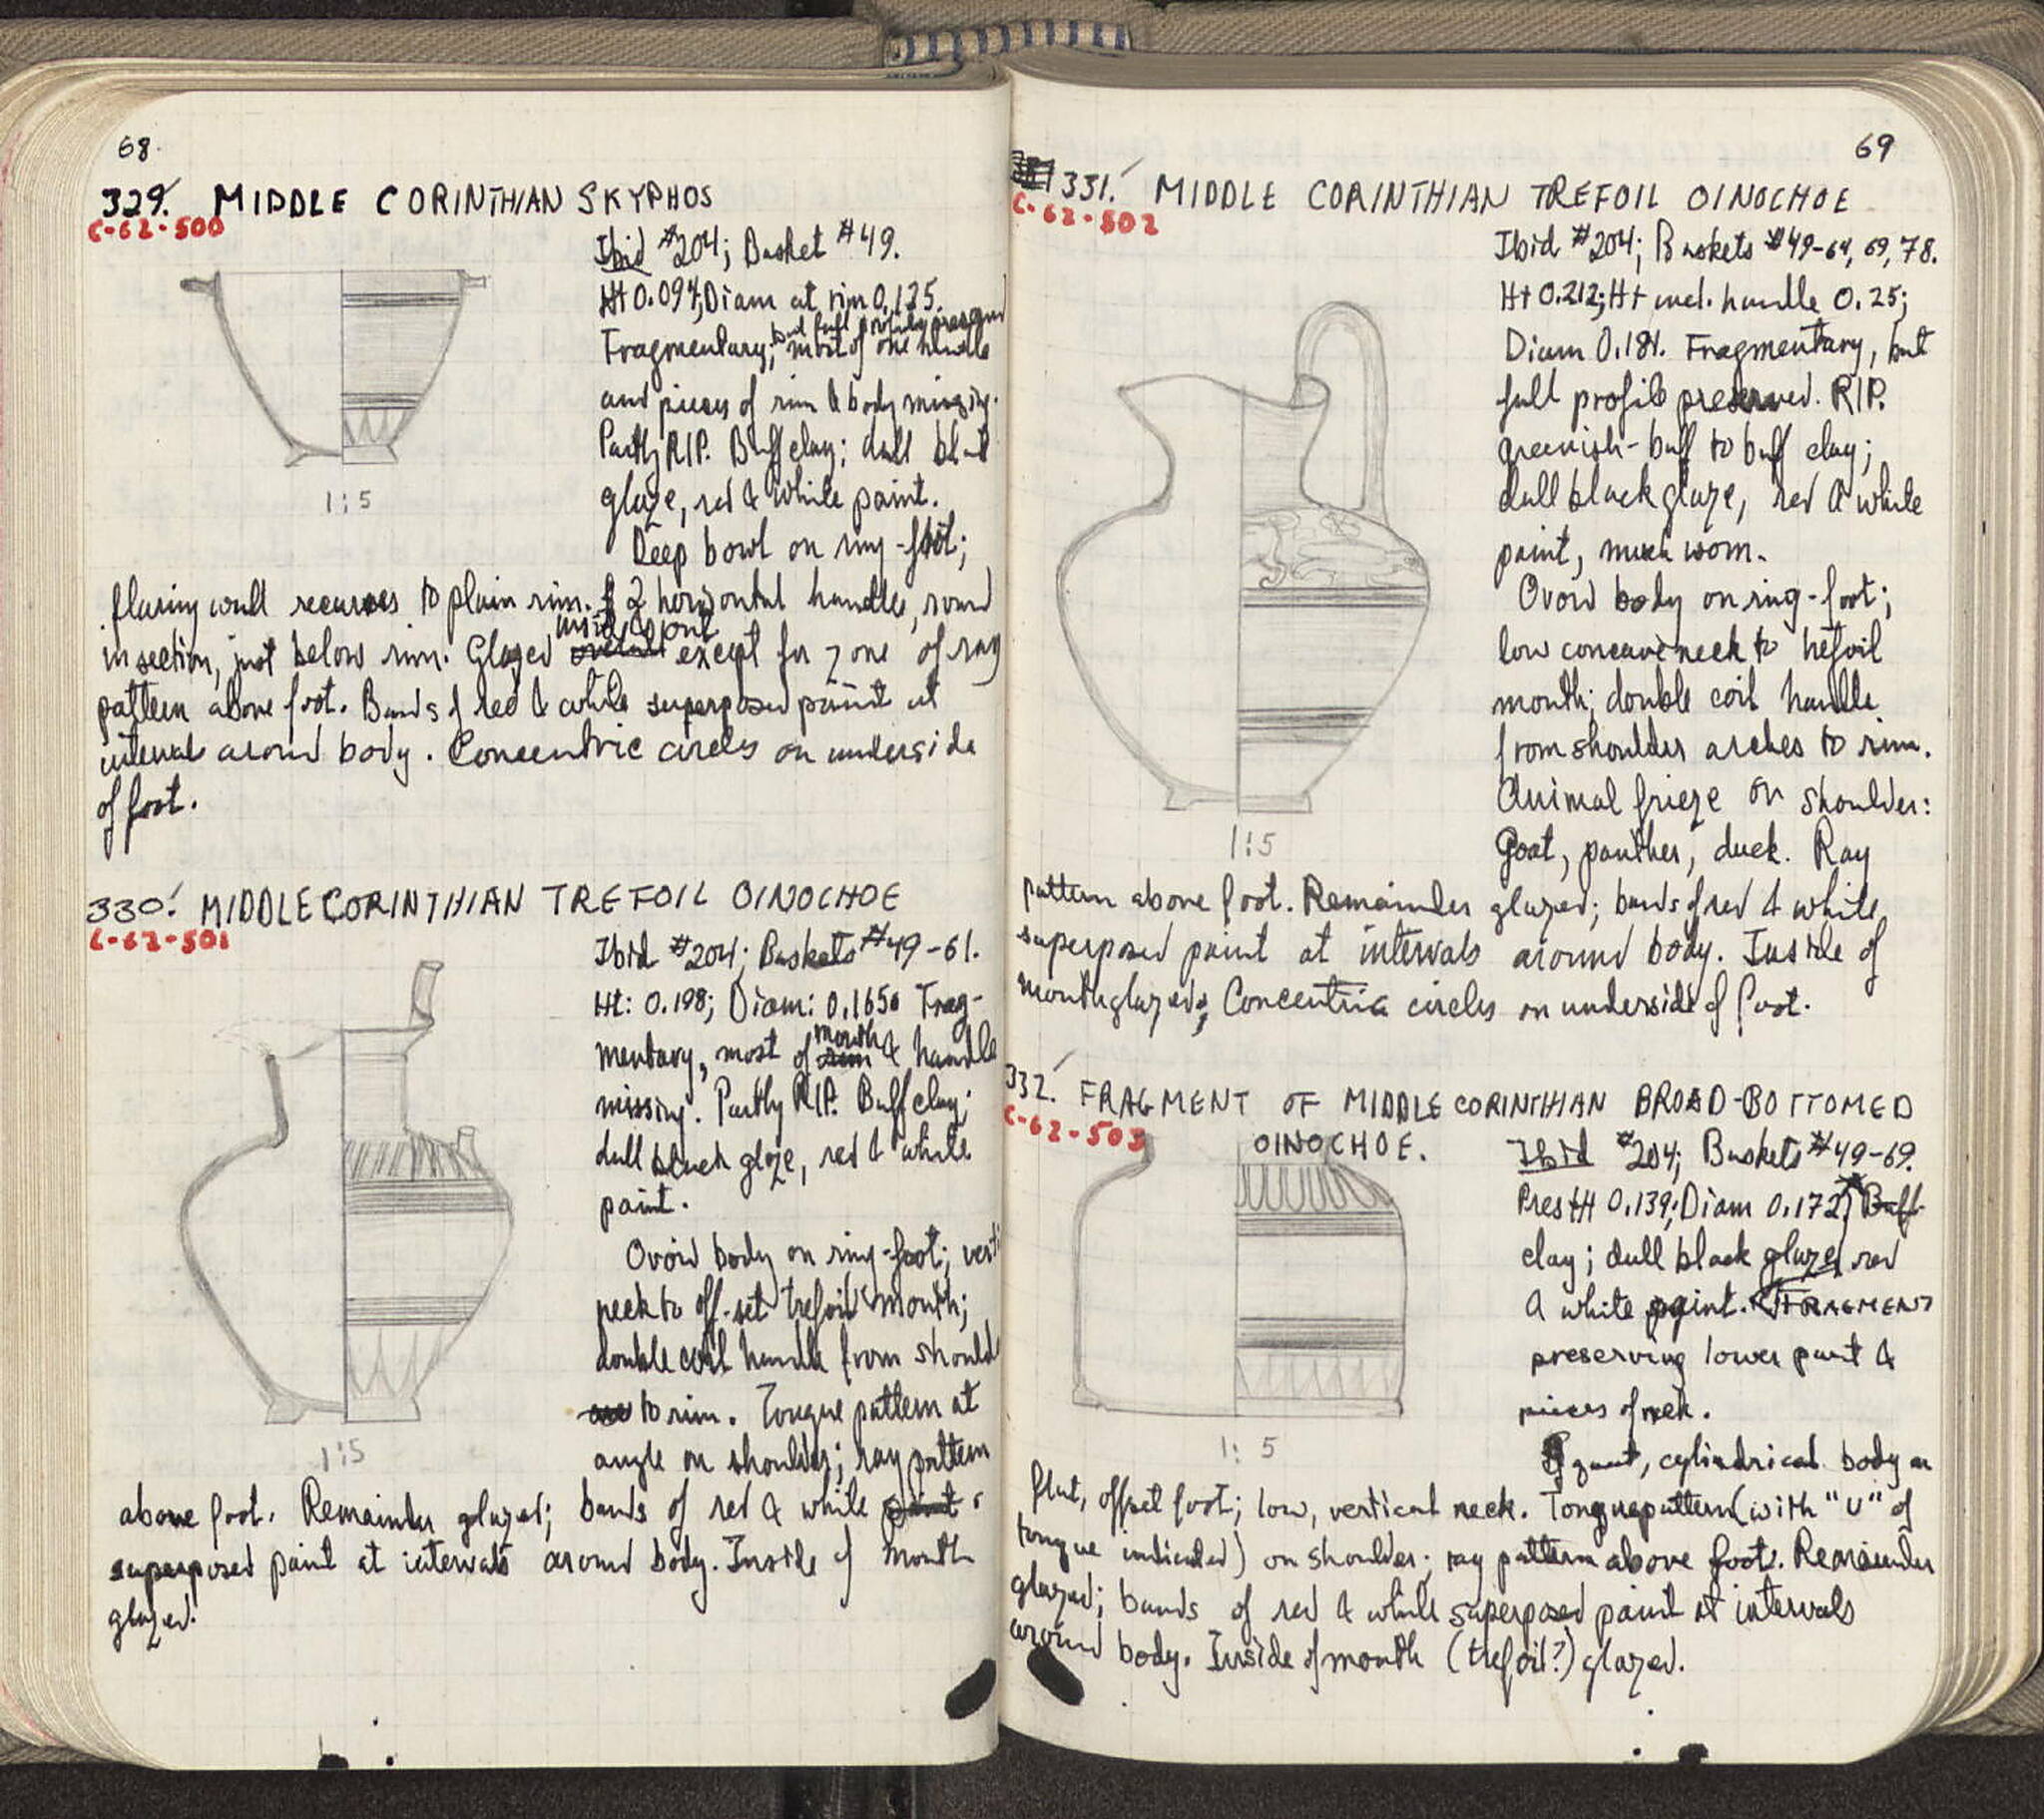 68.
329. MIDDLE CORINTHIAN SKYPHOS
C-62-500
Ibid #204; Basket #49.
Ht 0.094; Diam at rim 0.125.
Fragmentary; but full profile preserved
most of one handle
and pieces of rim & body missing.
Partly RIP. Buff clay; dull black
glaze, red & white paint.
Deep bowl on ring-foot;
flaring wall recurves to plain rim. 2 horizontal handles, round
in section, just below rim. Glazed overall inside & out except for zone of ray
pattern above foot. Bands of red & white superposed paint at
intervals around body. Concentric circles on underside
of foot.
1:5
330. MIDDLE CORINTHIAN TREFOIL OINOCHOE
C-62-501
Ibid #204; Baskets #49-61.
Ht: 0.198; Diam: 0.165. Frag-
mentary, most of rim mouth & handle
missing. Partly RIP. Buff clay;
dull black glaze, red & white
paint.
Ovoid body on ring-foot; vert
neck to off-set trefoil mouth;
double coil handle from should
to rim. Tongue pattern at
angle on shoulder; ray pattern
above foot. Remainder glazed; bands of red & white paint
superposed paint at intervals around body. Inside of mouth
glazed.
1:5
69
331. MIDDLE CORINTHIAN TREFOIL OINOCHOE
C-62-502
Ibid #204; Baskets #49-64, 69, 78.
Ht 0.212; Ht incl. handle 0.25;
Diam 0.181. Fragmentary, but
full profile preserved. RIP.
greenish-buff to buff clay;
dull black glaze, red & white
paint, much worn.
Ovoid body on ring-foot;
low concave neck to trefoil
mouth; double coil handle
from shoulder arches to rim.
Animal frieze on shoulder:
Goat, panther, duck. Ray
pattern above foot. Remainder glazed; bands of red & white
superposed paint at intervals around body. Inside of
mouth glazed; Concentric circles on underside of foot.
1:5
332. FRAGMENT OF MIDDLE CORINTHIAN BROAD-BOTTOMED
OINOCHOE.
C-62-503
Ibid #204; Baskets #49-69.
Pres Ht 0.139; Diam 0.172; Buff
clay; dull black glaze, red
& white paint. FRAGMENT
preserving lower part &
pieces of neck.
Squat, cylindrical body on
flat, offset foot; low, vertical neck. Tongue pattern (with "U" of
tongue indicated) on shoulder; ray pattern above foot. Remainder
glazed; bands of red & white superposed paint at intervals
around body. Inside of mouth (trefoil?) glazed.
1:5